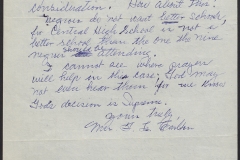 consideration. How about you?
negroes do not want better schools,
for Central High School is not a
better school than the one the nine
negroes attending.
I cannot see where prayer
will help in this case. God may
not even hear them for we know
Gods decision is Supreme.
yours truly,
Mrs